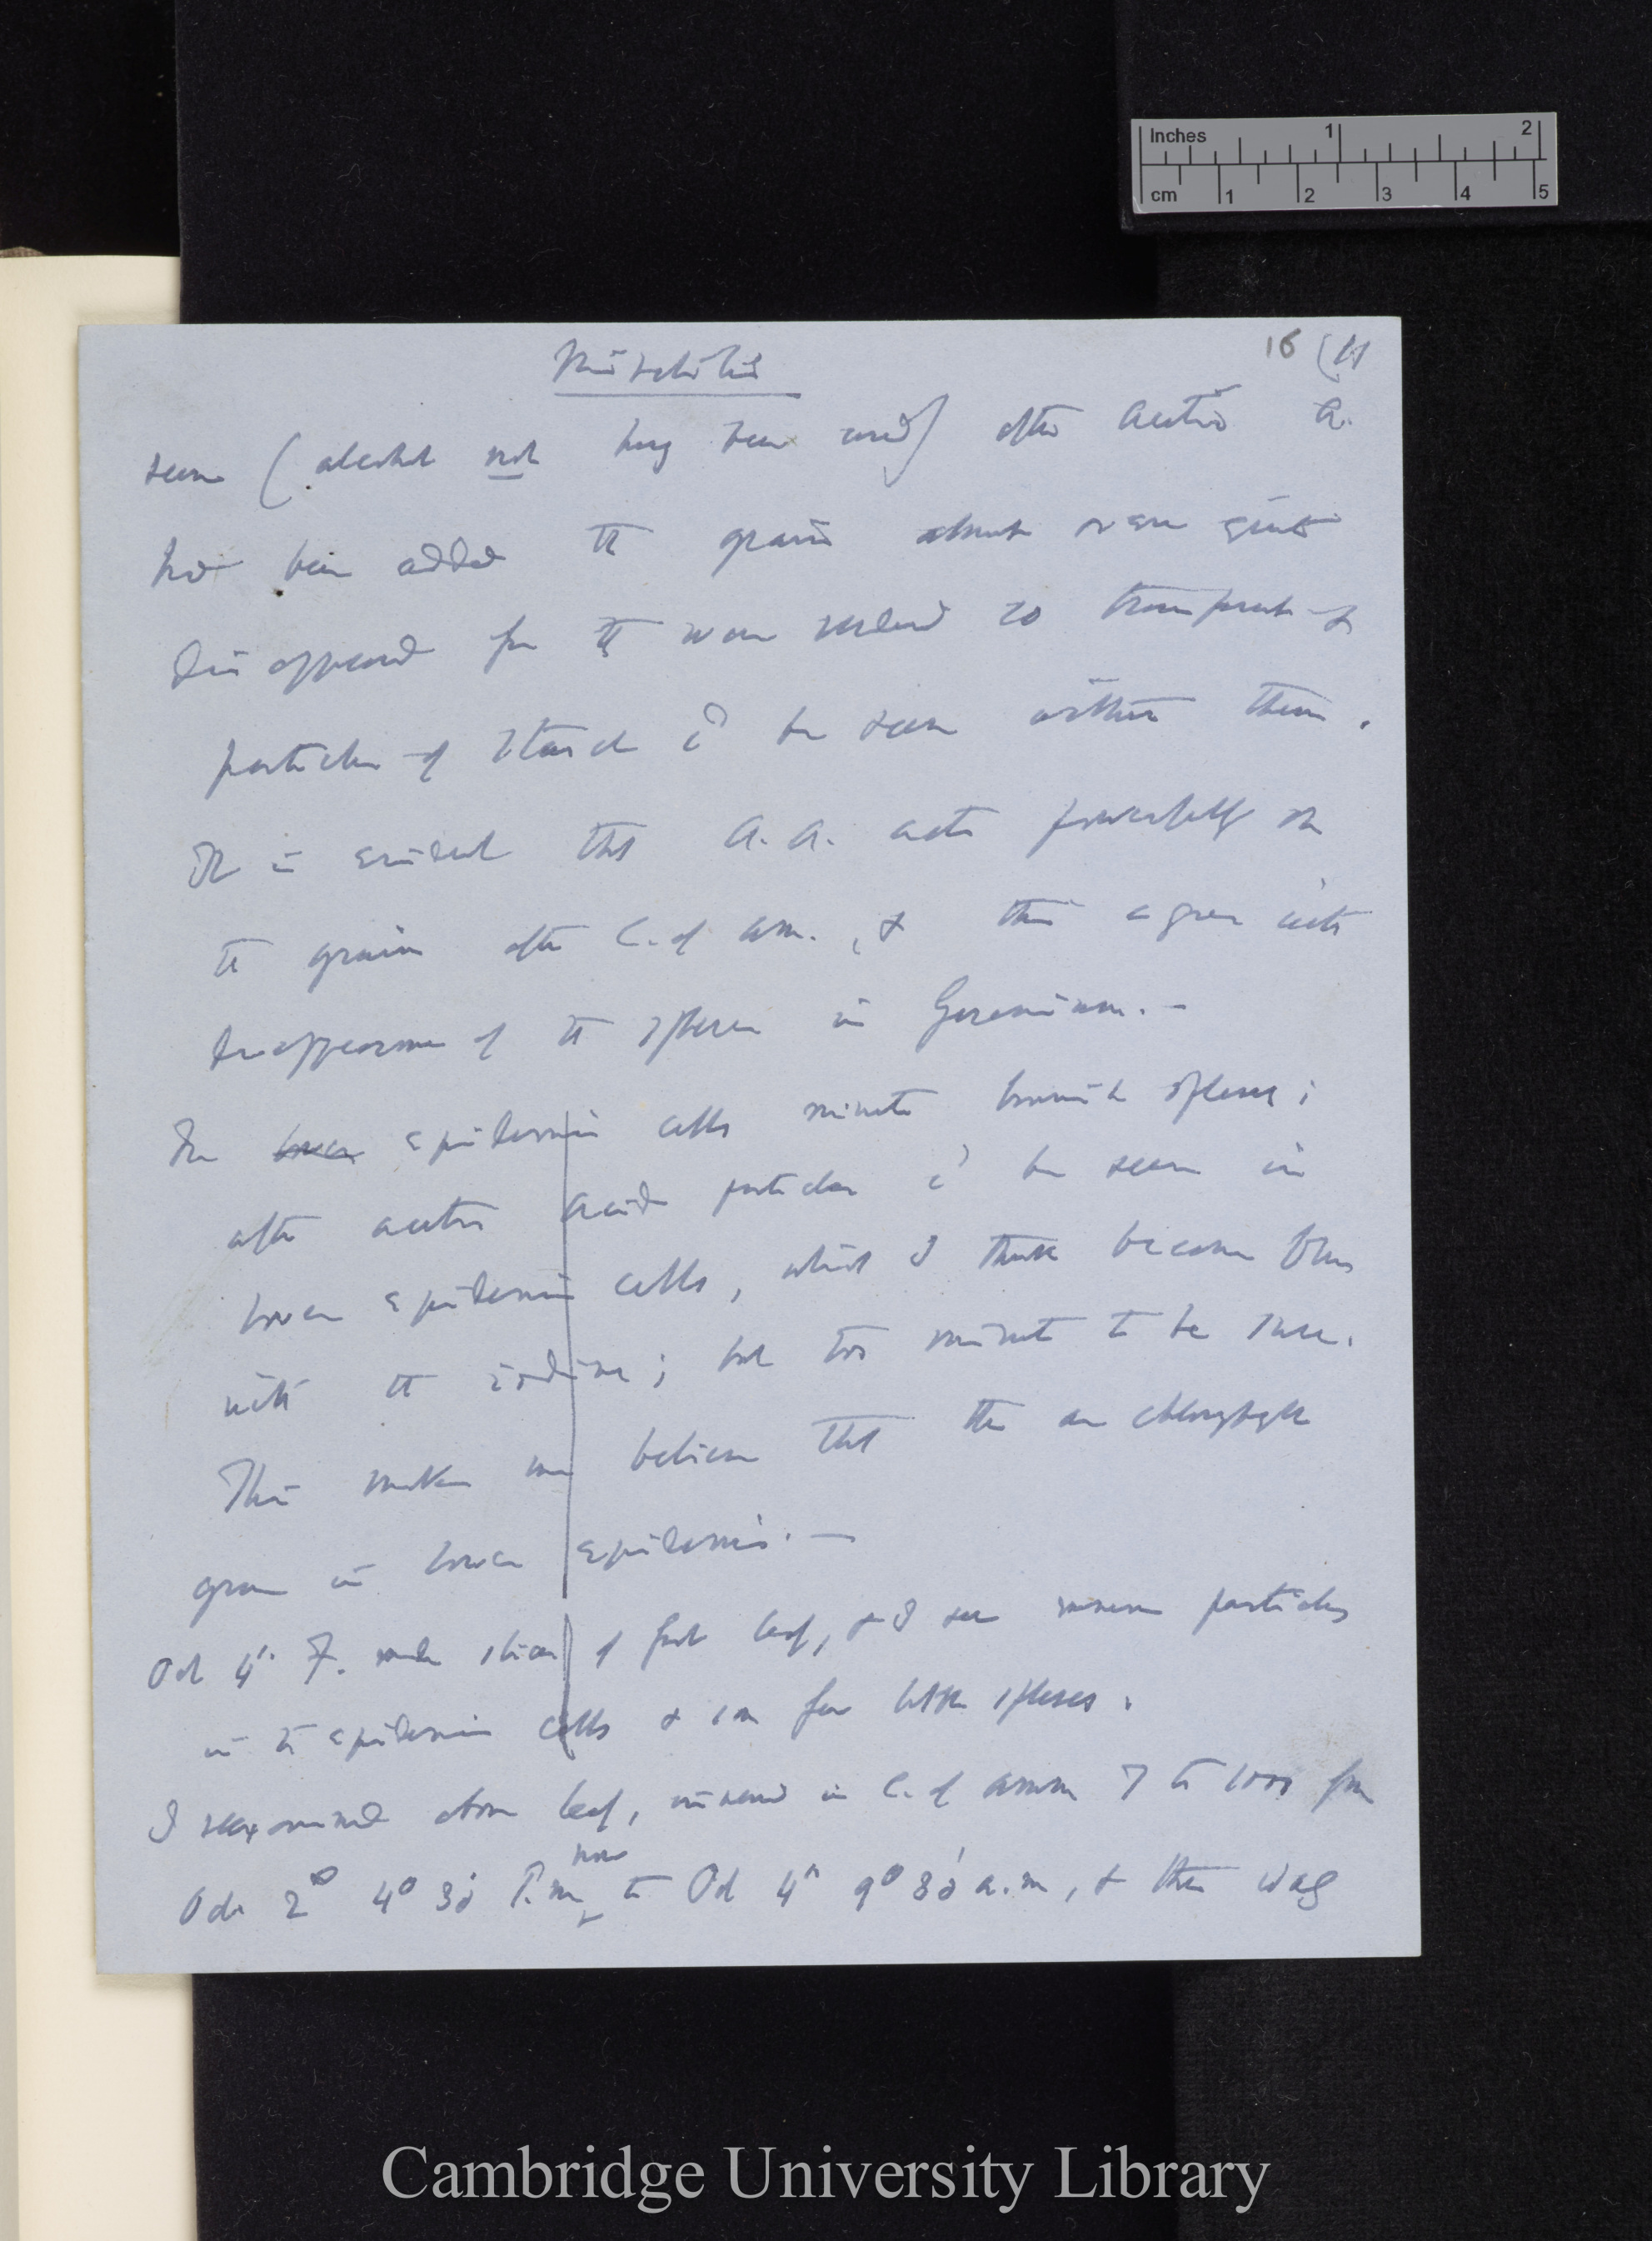 Inches 1 2
cm 1 2 3 4 5
16 (11
seen (alcohol not hvg been used) after acetic A.
had been added the grains almost or even quite
disappeared for they were rendered so transparent &
particles of starch cd be seen within them.
It is evident that A.A. acts powerfully on
the grains after C. of Am., & this agrees with
disappearance of the spheres in Geranium. —
In lower epidermic cells minute brownish spheres;
after acetic acid particles cd be seen in
lower epidermic cells, which I think became blue
with the iodine; but too minute to be sure.
This makes me believe that there are chlorophyll
grains in lower epidermis. —
Oct 4th F. made slices of fresh leaf, & I see numerous particles
in the epidermic cells & some few little spheres.
I reexamined above leaf, immersed in C. of Ammon 7 to 1000 from
now
Oct 2d 4° 30' P.m to Oct 4th 9° 30' a.m, & there was
Cambridge University Library